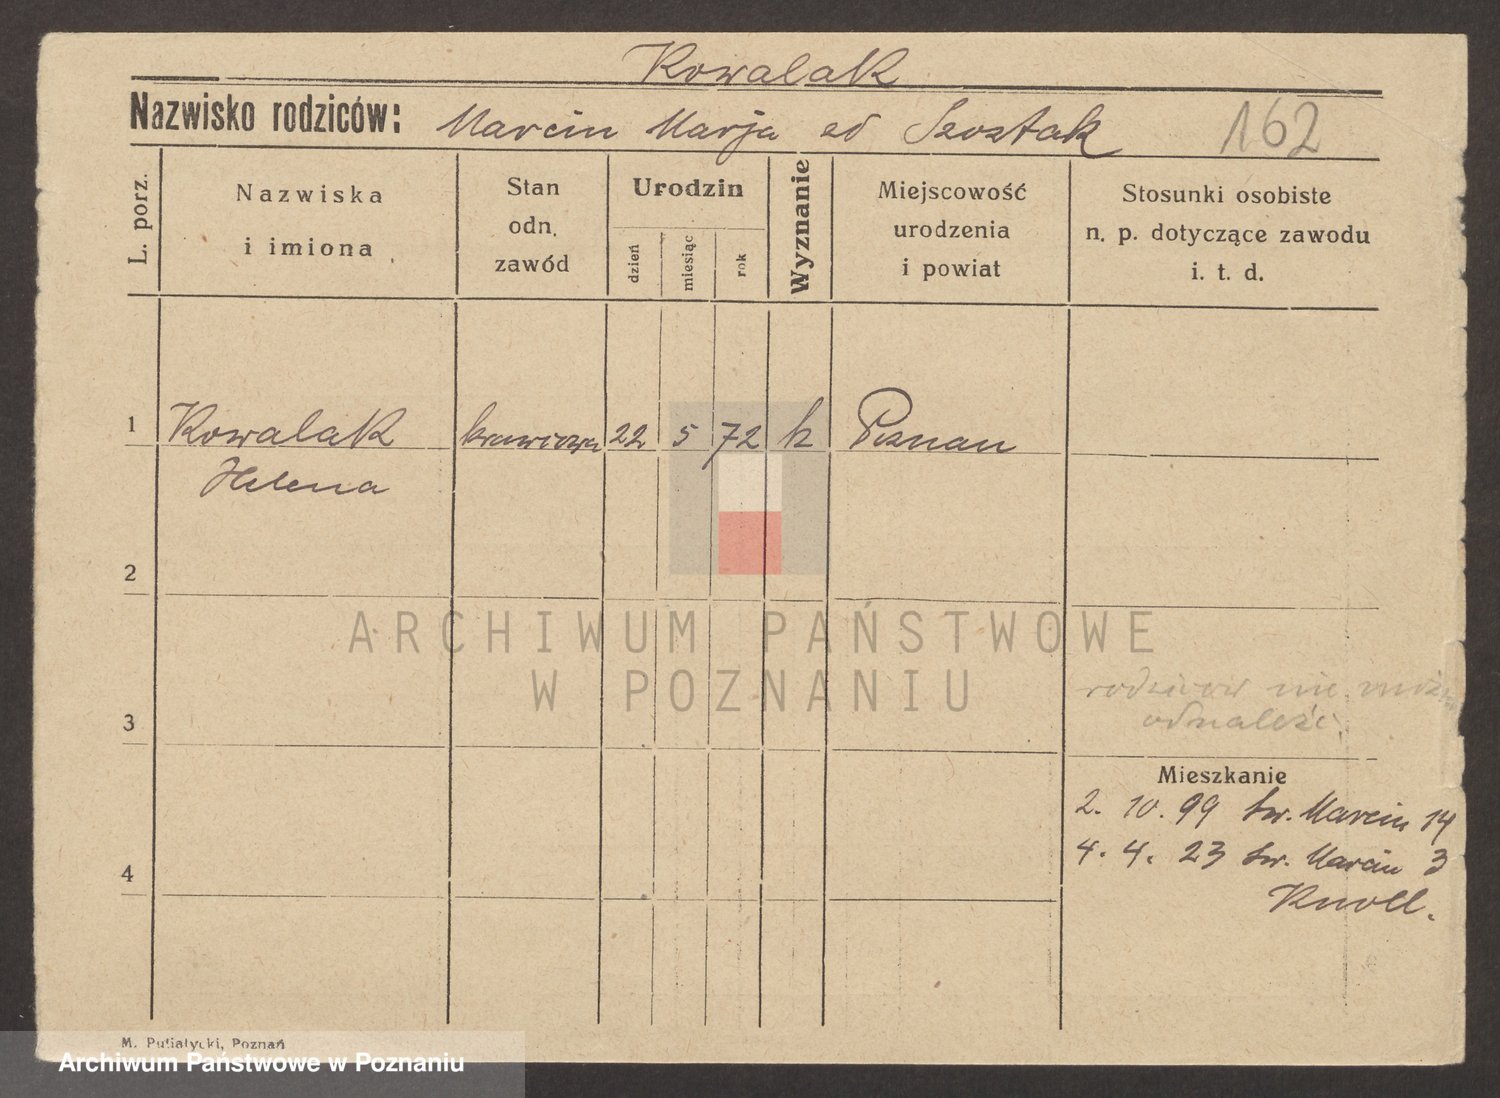 Kowalak
Nazwisko rodziców: Marcin Marja zd Szostak 162
L. porz.
Nazwiska
i imiona
Stan
odn.
zawód
Urodzin
dzień
miesiąc
rok
Wyznanie
Miejscowość
urodzenia
i powiat
Stosunki osobiste
n. p. dotyczące zawodu
i. t. d.
1 Kowalak krawcowa 22 5 72 k Poznan
Helena
2
ARCHIWUM PAŃSTWOWE
W POZNANIU
rodziców nie można
odnaleźć
3
Mieszkanie
2. 10. 99 św. Marcin 14
4. 4. 23 św. Marcin 3
4
Knoll.
M. Putiatycki, Poznań
Archiwum Państwowe w Poznaniu